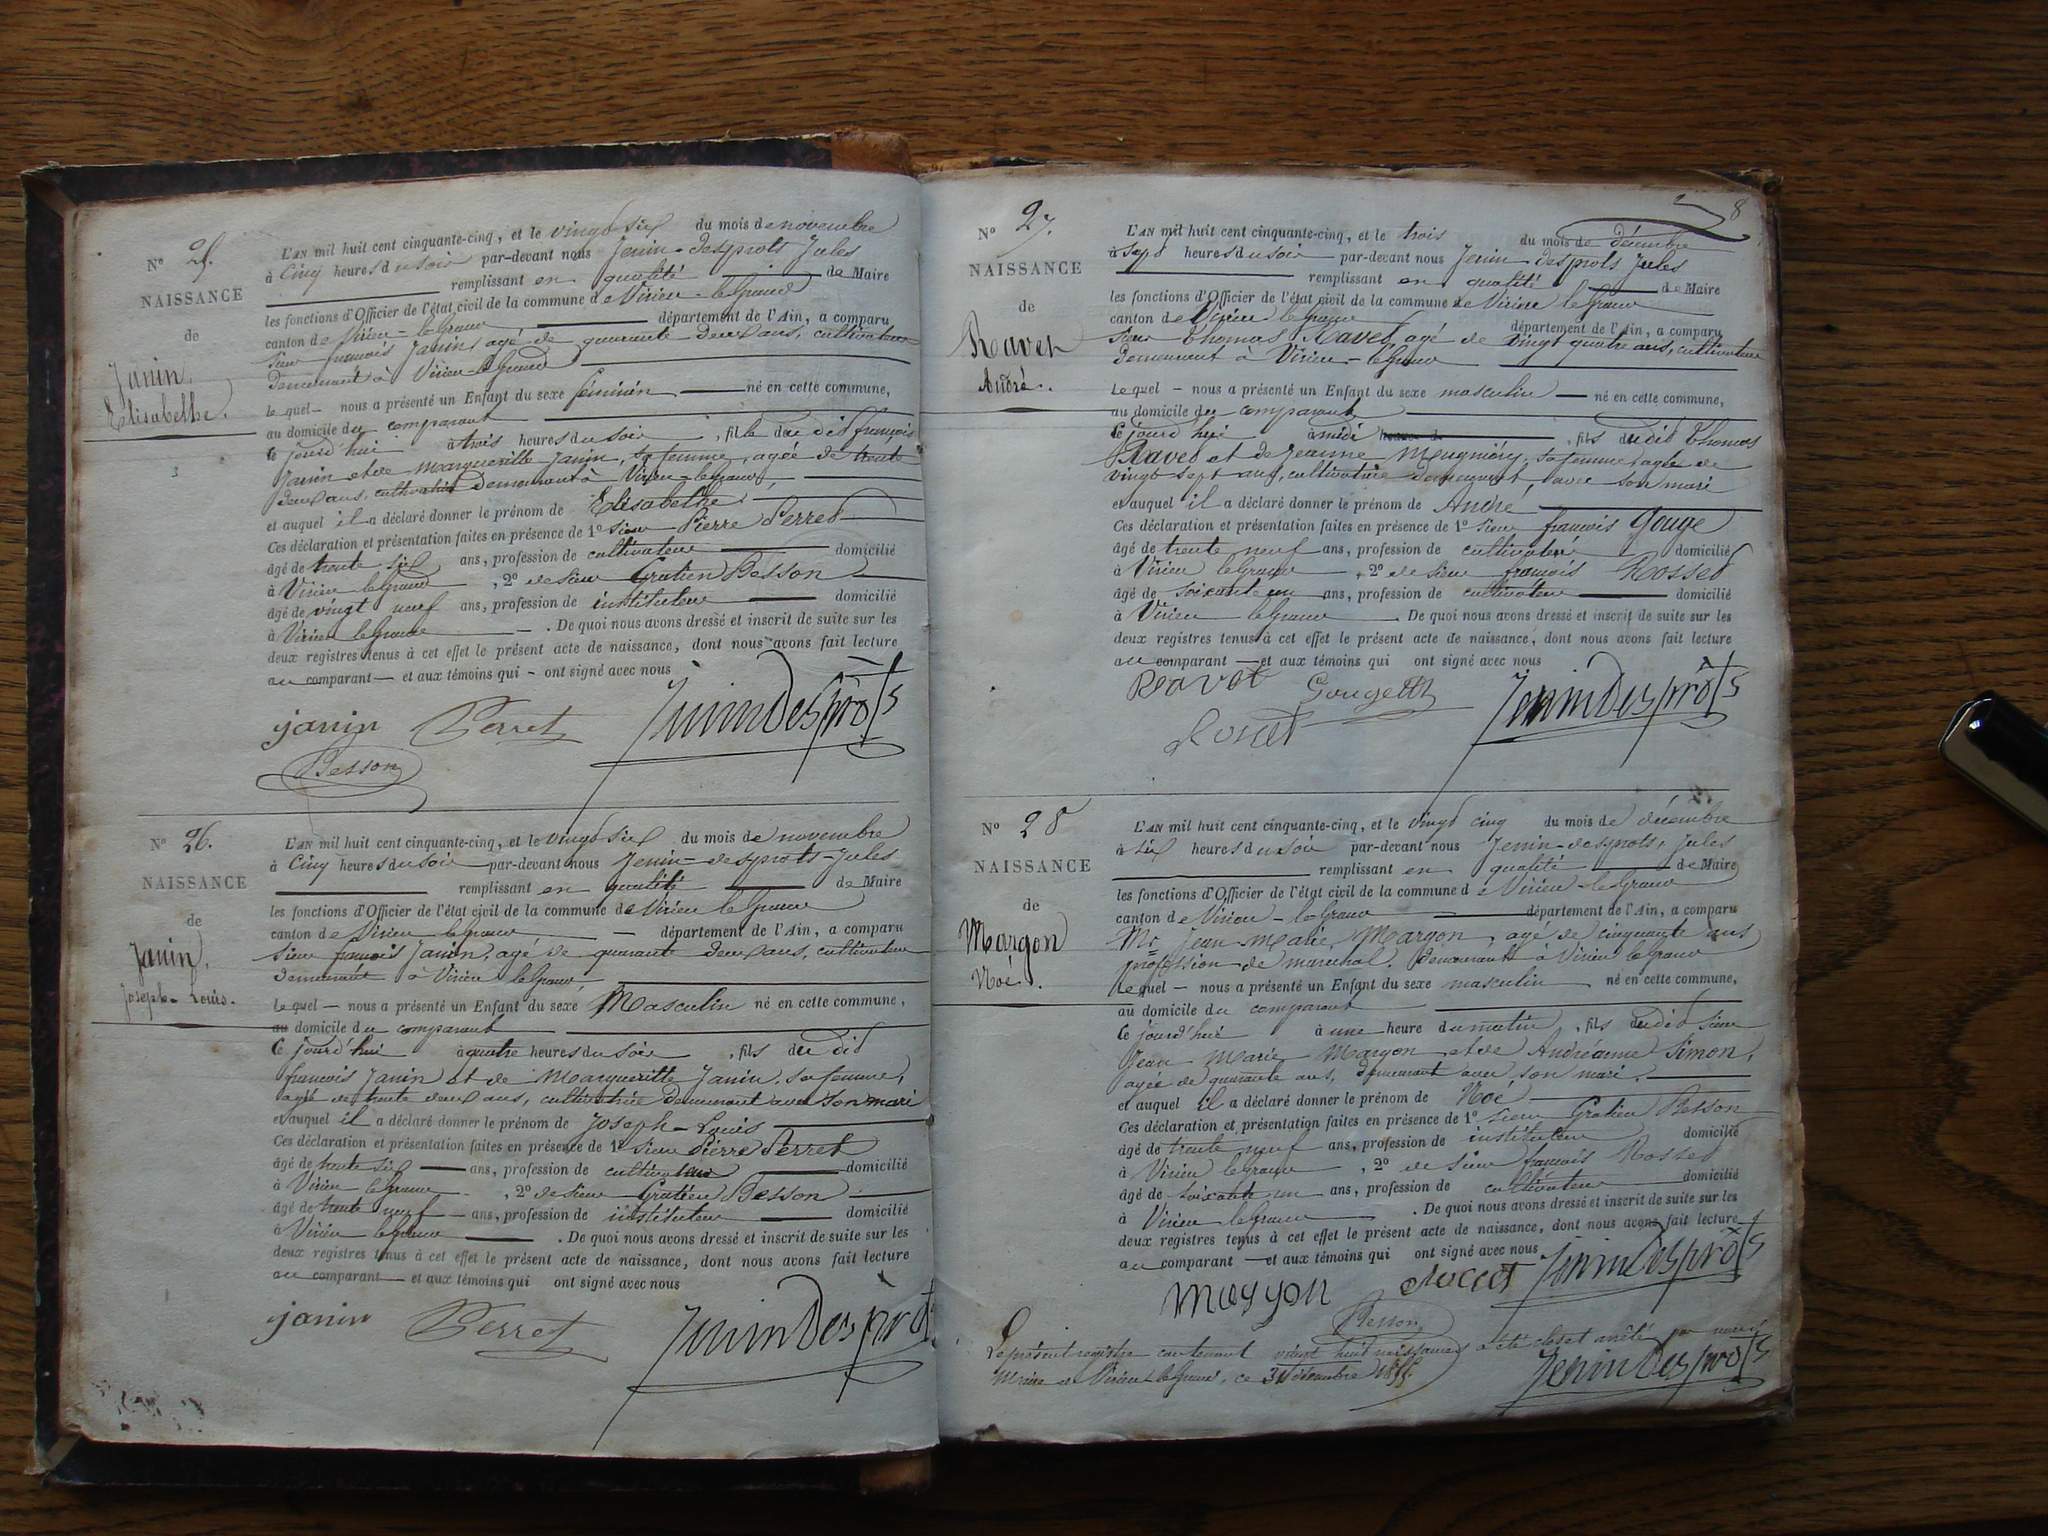 N° 25.
NAISSANCE
de
Janin,
Elisabethe.
L'AN mil huit cent cinquante-cinq, et le vingt-six du mois de novembre
à Cinq heures du soir par-devant nous Jenin-desprots Jules
remplissant en qualité de Maire
les fonctions d'Officier de l'état civil de la commune de Virieu-le-Grand
canton de Virieu-le-Grand département de l'Ain, a comparu
Sieur françois Janin, agé de quarante deux ans, cultivateur
demeurant à Virieu-le-Grand
lequel nous a présenté un Enfant du sexe féminin né en cette commune,
au domicile du comparant
Ce jourd'hui à trois heures du soir, fille du dit françois
Janin et de Margueritte Janin, sa femme, agée de trente
deux ans, demeurant à Virieu-le-Grand
et auquel il a déclaré donner le prénom de Elisabethe
Ces déclaration et présentation faites en présence de 1° sieur Pierre Perret
âgé de trente six ans, profession de cultivateur domicilié
à Virieu leGrand, 2° de sieur Gratien Besson
âgé de vingt neuf ans, profession de instituteur domicilié
à Virieu leGrand. De quoi nous avons dressé et inscrit de suite sur les
deux registres tenus à cet effet le présent acte de naissance, dont nous avons fait lecture
au comparant et aux témoins qui ont signé avec nous
janin Perret JeninDesprots
Besson
N° 26.
NAISSANCE
de
Janin,
Joseph-Louis.
L'AN mil huit cent cinquante-cinq, et le vingt-six du mois de novembre
à Cinq heures du soir par-devant nous Jenin-desprots-Jules
remplissant en qualité de Maire
les fonctions d'Officier de l'état civil de la commune de Virieu leGrand
canton de Virieu leGrand département de l'Ain, a comparu
Sieur françois Janin, agé de quarante deux ans, cultivateur
demeurant à Virieu leGrand,
lequel nous a présenté un Enfant du sexe Masculin né en cette commune,
au domicile du comparant
Ce jourd'hui à quatre heures du soir, fils du dit
françois Janin et de Margueritte Janin, sa femme,
agée de trente deux ans, cultivatrice demeurant avec son mari
et auquel il a déclaré donner le prénom de Joseph-Louis
Ces déclaration et présentation faites en présence de 1° sieur Pierre Perret
âgé de trente six ans, profession de cultivateur domicilié
à Virieu leGrand, 2° de sieur Gratien Besson
âgé de trente neuf ans, profession de instituteur domicilié
à Virieu leGrand. De quoi nous avons dressé et inscrit de suite sur les
deux registres tenus à cet effet le présent acte de naissance, dont nous avons fait lecture
au comparant et aux témoins qui ont signé avec nous
janin Perret JeninDesprots
8
N° 27.
NAISSANCE
de
Ravet
André.
L'AN mil huit cent cinquante-cinq, et le trois du mois de décembre
à sept heures du soir par-devant nous Jenin-desprots Jules
remplissant en qualité de Maire
les fonctions d'Officier de l'état civil de la commune de Virieu leGrand
canton de Virieu leGrand département de l'Ain, a comparu
Sieur Thomas Ravet, agé de vingt quatre ans, cultivateur
demeurant à Virieu-leGrand
lequel nous a présenté un Enfant du sexe masculin né en cette commune,
au domicile du comparant
Ce jourd'hui à midi, fils du dit Thomas
Ravet et de Jeanne Meugniéry, sa femme, agée de
vingt sept ans, cultivatrice demeurant avec son mari
et auquel il a déclaré donner le prénom de André,
Ces déclaration et présentation faites en présence de 1° sieur françois Gouge
âgé de trente neuf ans, profession de cultivateur domicilié
à Virieu leGrand, 2° de sieur françois Rosset
âgé de soixante un ans, profession de cultivateur domicilié
à Virieu leGrand. De quoi nous avons dressé et inscrit de suite sur les
deux registres tenus à cet effet le présent acte de naissance, dont nous avons fait lecture
au comparant et aux témoins qui ont signé avec nous
Ravet JeninDesprots
N° 28
NAISSANCE
de
Margon
Noé.
L'AN mil huit cent cinquante-cinq, et le vingt cinq du mois de décembre
à six heures du soir par-devant nous Jenin-desprots, Jules
remplissant en qualité de Maire
les fonctions d'Officier de l'état civil de la commune de Virieu-leGrand
canton de Virieu-leGrand département de l'Ain, a comparu
Mr Jean Marie Margon, agé de cinquante ans
profession de marechal, demeurant à Virieu leGrand
lequel nous a présenté un Enfant du sexe masculin né en cette commune,
au domicile du comparant
Ce jourd'hui à une heure du matin, fils du dit sieur
Jean Marie Margon et de Andréanne Simon,
agée de quarante ans, demeurant avec son mari.
et auquel il a déclaré donner le prénom de Noé
Ces déclaration et présentation faites en présence de 1° sieur Gratien Besson
âgé de trente neuf ans, profession de instituteur domicilié
à Virieu leGrand, 2° de sieur françois Rosset
âgé de soixante un ans, profession de cultivateur domicilié
à Virieu leGrand. De quoi nous avons dressé et inscrit de suite sur les
deux registres tenus à cet effet le présent acte de naissance, dont nous avons fait lecture
au comparant et aux témoins qui ont signé avec nous
Margon Rosset JeninDesprots
Besson
Le présent registre contenant vingt huit naissances a été clos et arrêté par nous
Maire de Virieu-leGrand, ce 31 décembre 1855.
JeninDesprots